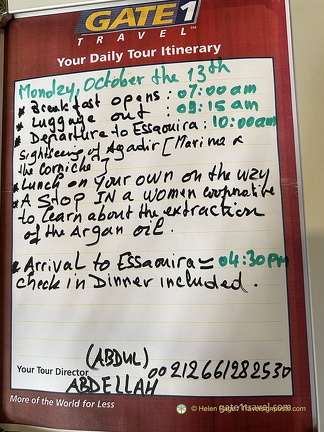 GATE 1
TRAVEL
Your Daily Tour Itinerary
Monday, October the 13th
* Breakfast opens : 07:00 am
* Luggage out : 09:15 am
* Departure to Essaouira : 10:00am
Sightseeing of Agadir [Marina &
the Corniche]
* Lunch on your own on the way
* A stop IN a women cooperative
to learn about the extraction
of the Argan oil.
* Arrival to Essaouira = 04:30PM
check in Dinner included.
(ABDUL)
Your Tour Director ABDELLAH 00212661982530
More of the World for Less
gate1travel.com
© Helen Page Travelsignposts.com